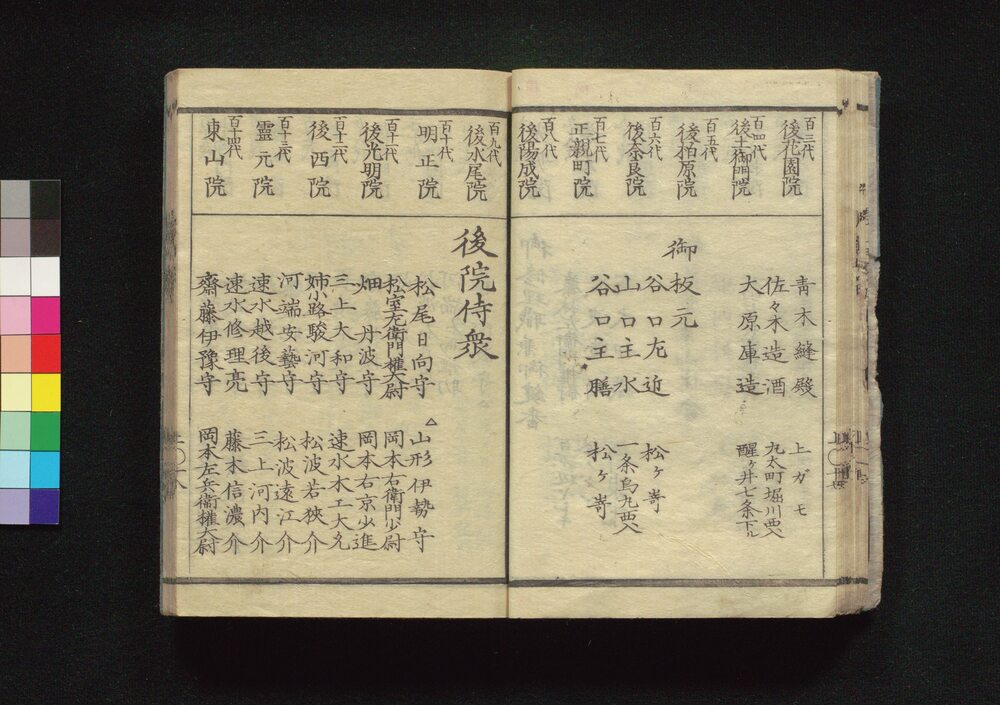 百三代
後花園院
百四代
後土御門院
百五代
後柏原院
百六代
後奈良院
百七代
正親町院
百八代
後陽成院
青木縫殿
上ガモ
佐々木造酒
九太町堀川西へ入
大原庫造
醒ヶ井七条下ル
御板元
谷口左近
松ヶ嵜
山口主水
一条烏丸西へ入
谷口主膳
松ヶ嵜
百九代
後水尾院
百十代
明正院
百十一代
後光明院
百十二代
後西院
百十三代
靈元院
百十四代
東山院
後院侍衆
松尾日向守
△山形伊勢守
松室左衛門權大尉
岡本右衛門少尉
畑丹波守
岡本右京少進
三上大和守
速水木工大允
姉小路駿河守
松波若狭介
河端安藝守
松波遠江介
速水越後守
三上河内介
速水修理亮
藤木信濃介
齋藤伊豫守
岡本左兵衛權大尉